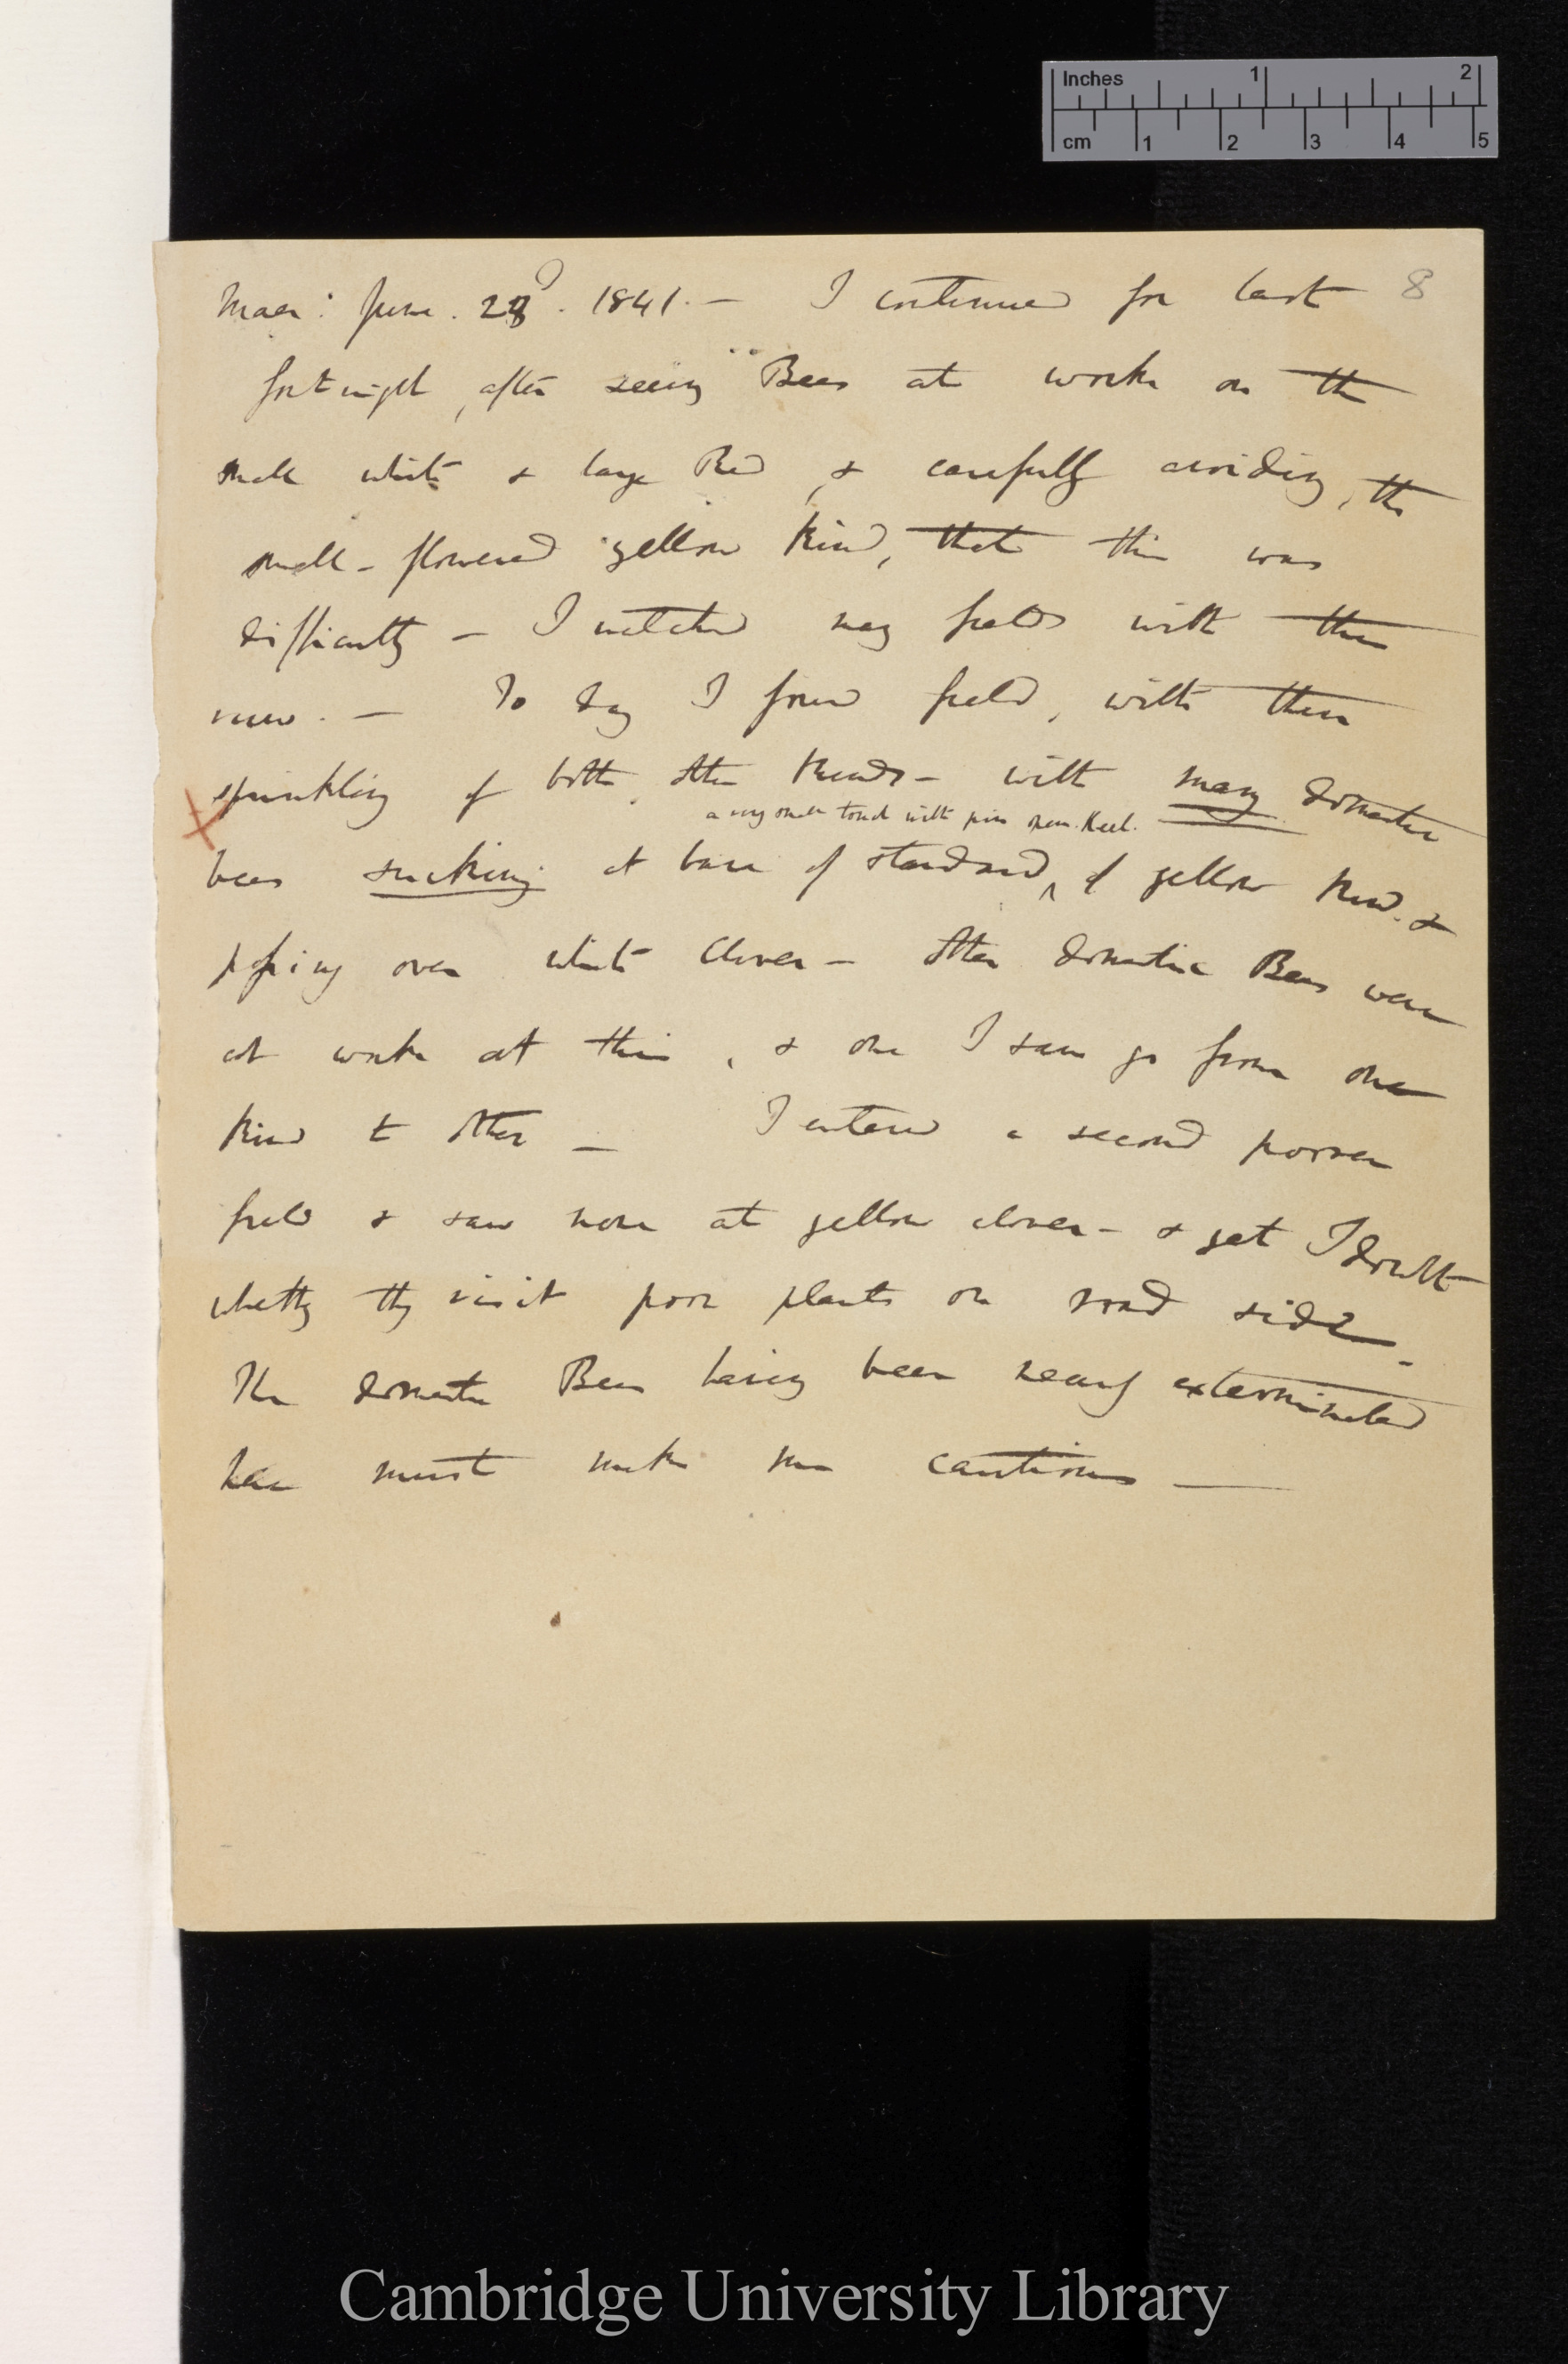 Inches 1 2
cm 1 2 3 4 5
8
Maer: June. 28. 1841. — I continued for last
fortnight, after seeing Bees at work on the
small white & large Red, & carefully avoiding, the
small-flowered yellow kind, that this was
difficulty — I watched many fields with the
view. — To day I found field, with thin
sprinkling of both other kinds — with many domestic
a very small touch with pin opens Keel.
bees sucking at base of standard ^ of yellow kind. &
passing over white Clover — Other domestic Bees were
at work at this, & one I saw go from one
kind to other — I entered a second poorer
field & saw none at yellow clover — & yet I doubt
whether they visit poor plants on road side.
The domestic Bees having been nearly exterminated
here must make me cautious —
Cambridge University Library